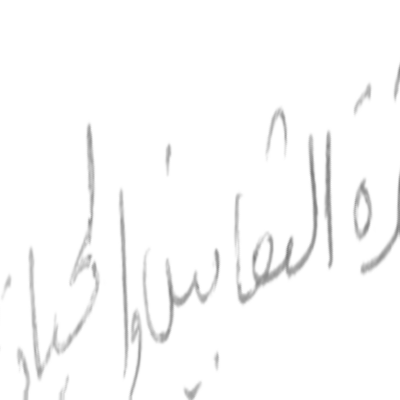 رة الثعابين والحيا